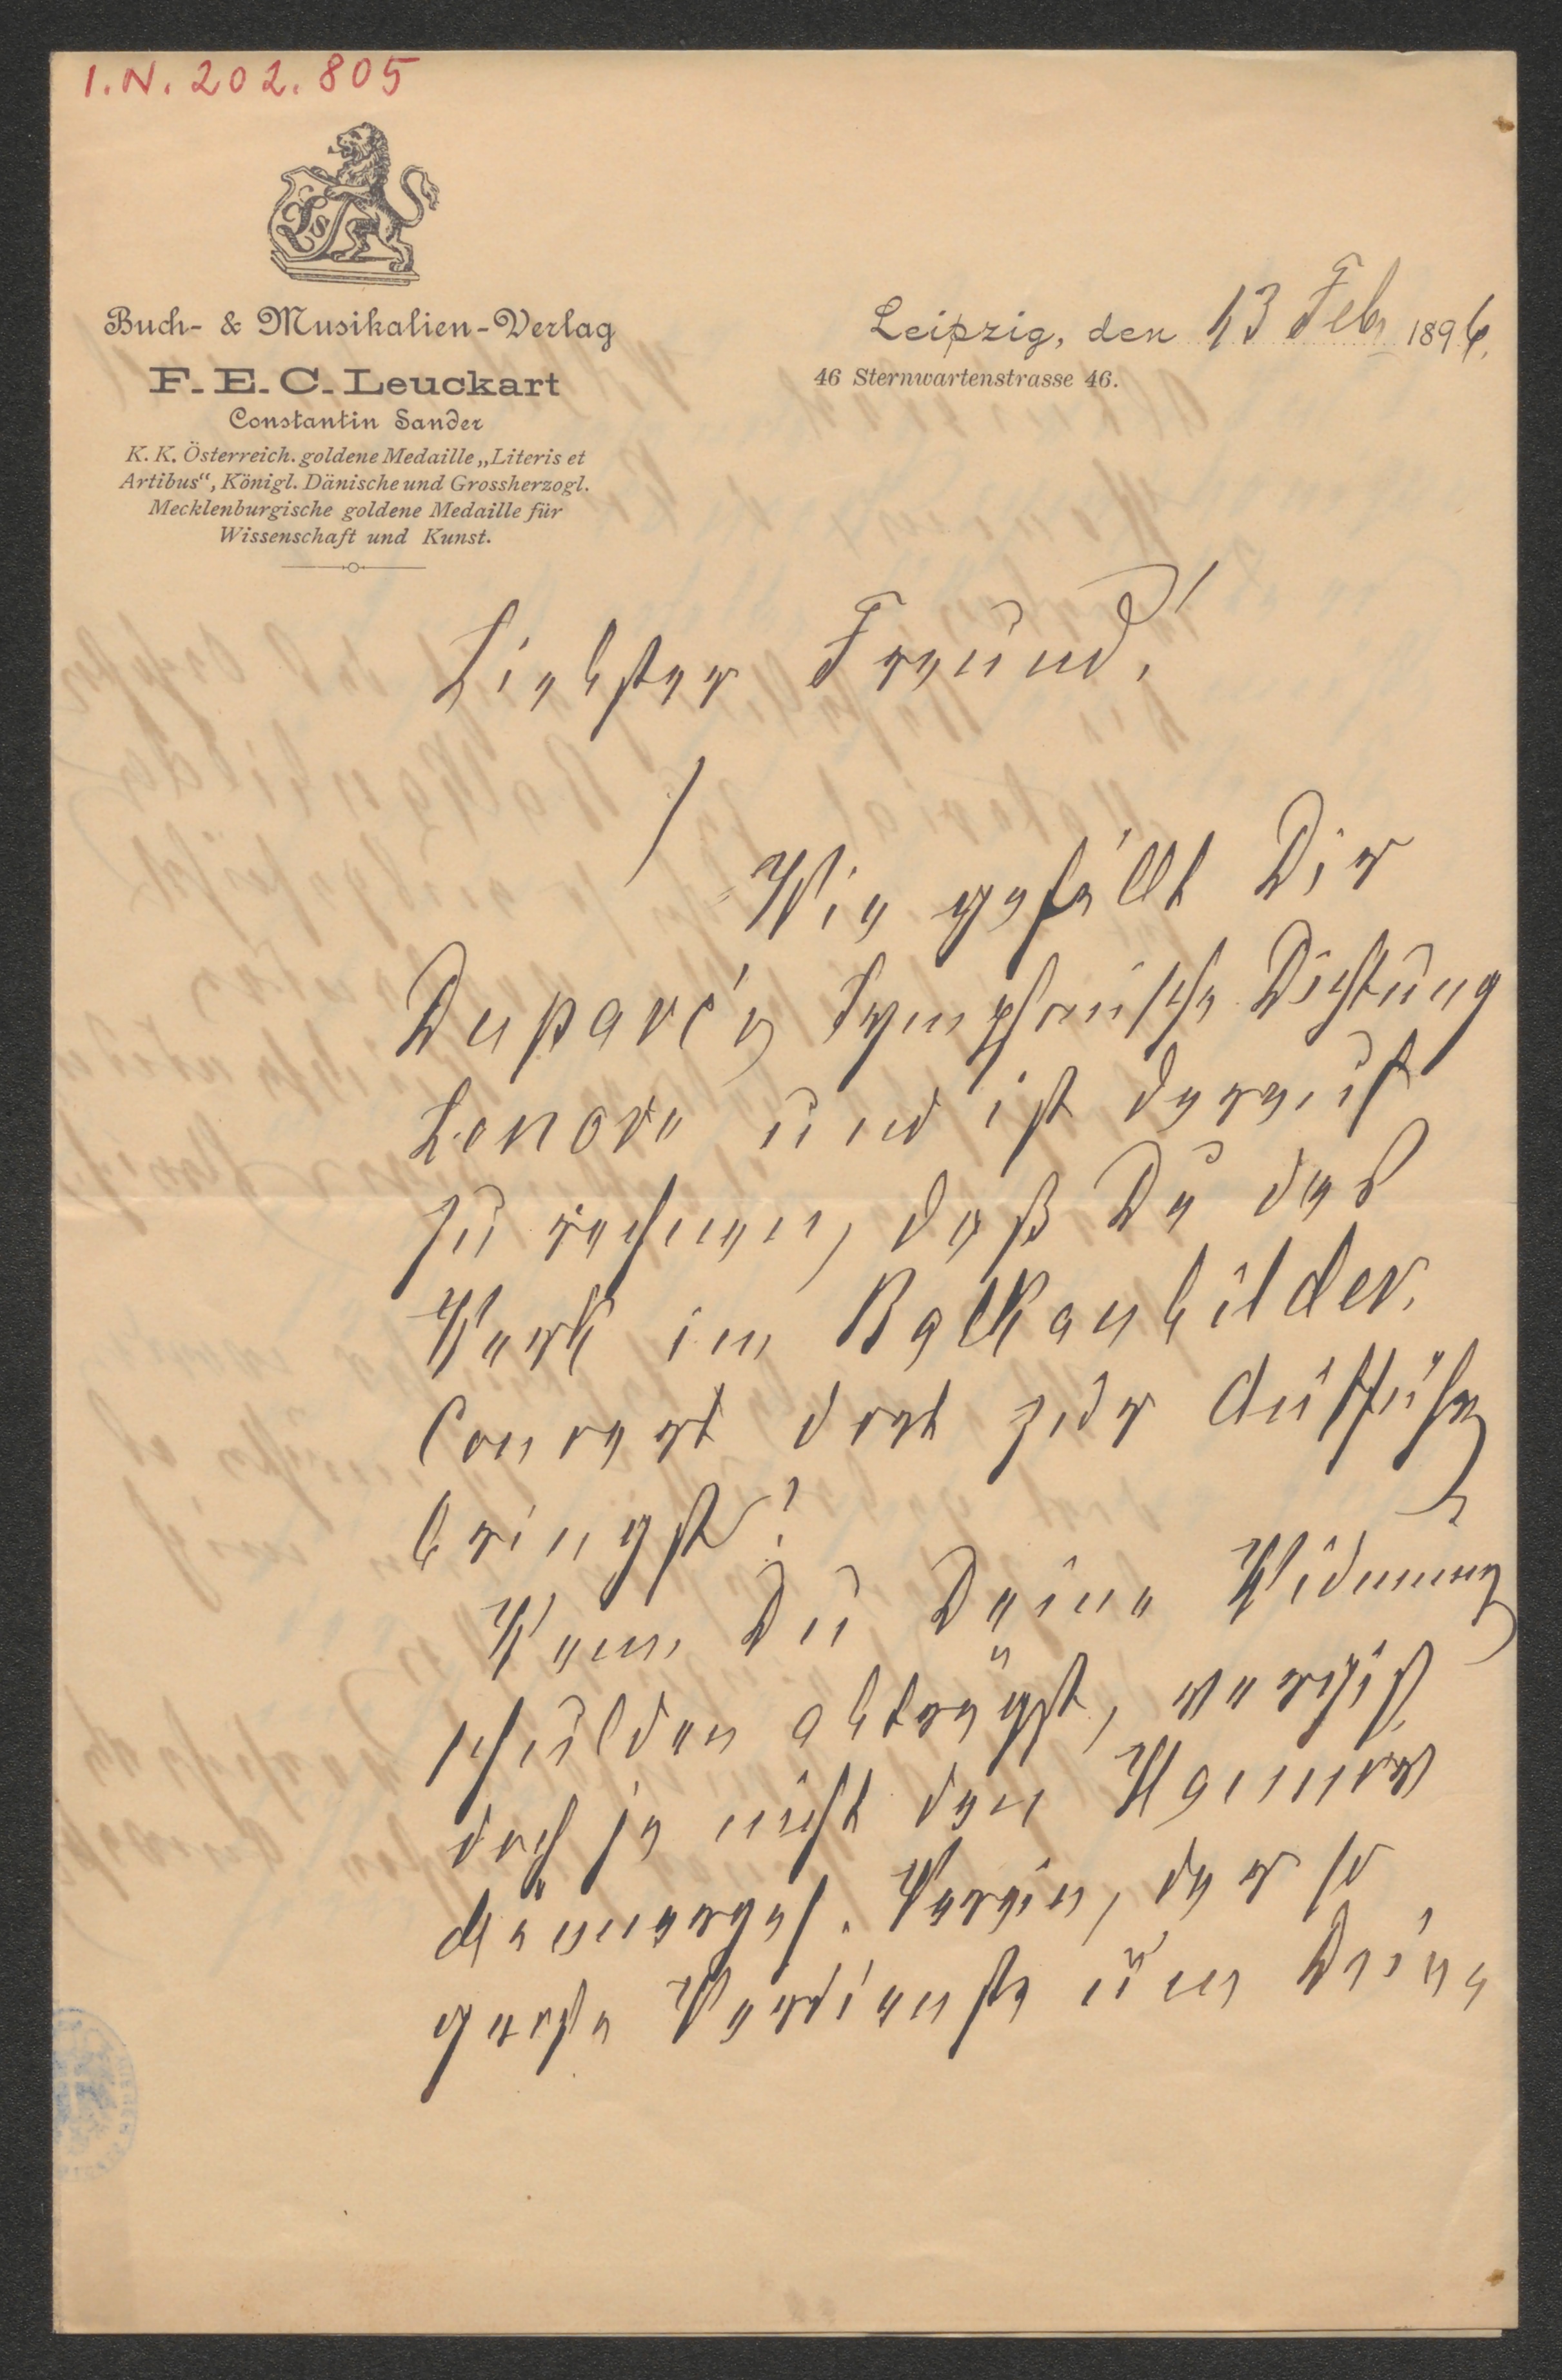 I.N. 202.805
Buch- & Musikalien-Verlag
F. E. C. Leuckart
Constantin Sander
K. K. Österreich. goldene Medaille „Literis et
Artibus“, Königl. Dänische und Grossherzogl.
Mecklenburgische goldene Medaille für
Wissenschaft und Kunst.
Leipzig, den 13 Febr 1896.
46 Sternwartenstrasse 46.
Liebster Freund!
Wie gefällt Dir
Duparc's Symphonische Dichtung
Lenore und ist darauf
zu rechnen, daß Du das
Werk im Balkanbilder.
Concert dort zur Aufführg
bringst?
Wenn Du Deine Widmung
schulden abträgst, vergiß
doch ja nicht den Hannov
Männerges. Verein, der so
große Verdienste um Deine